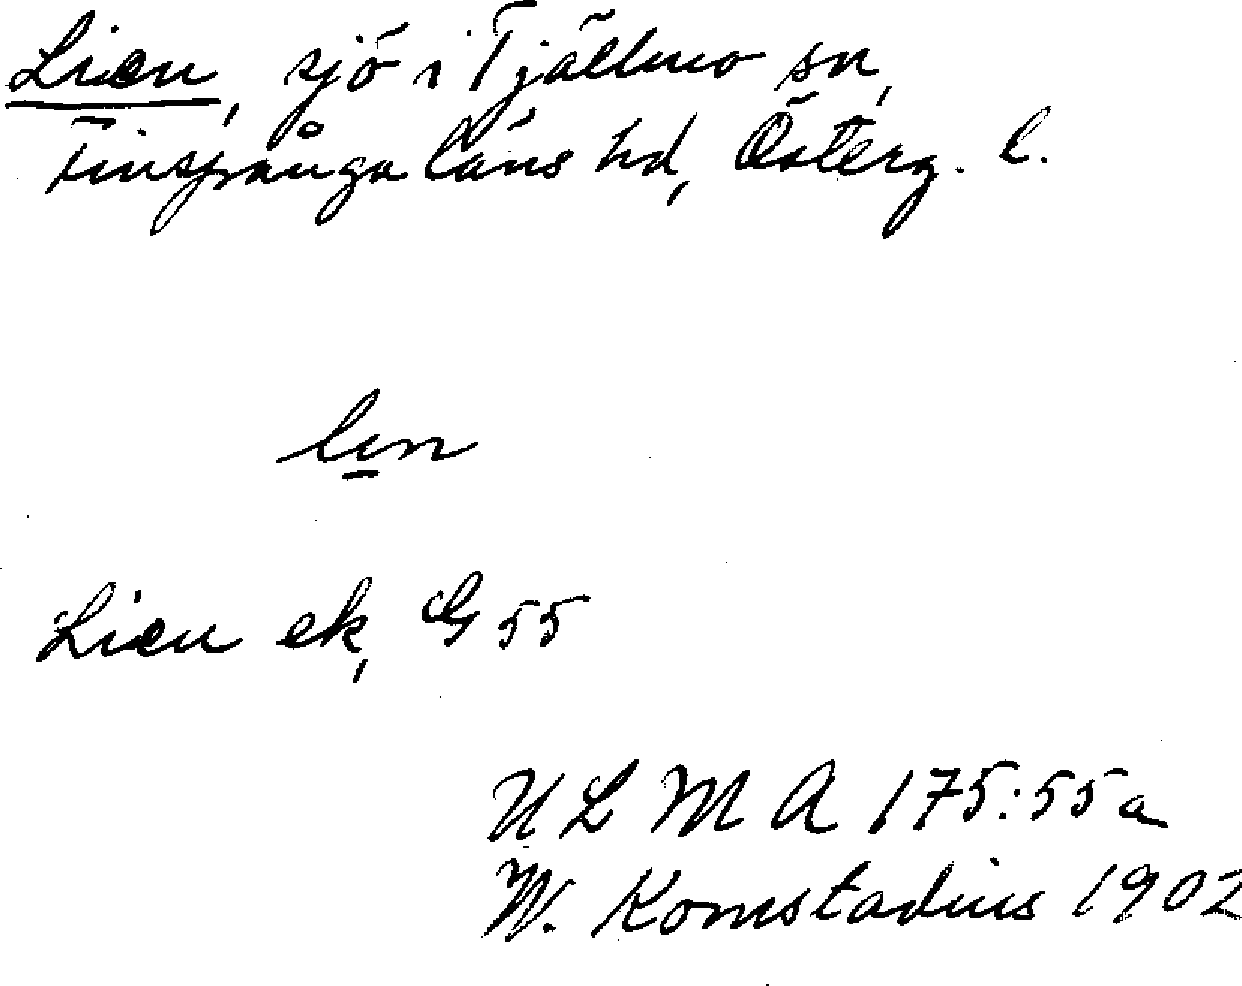 Lien, sjö i Tjällmo sn,
Finspånga läns hd, Österg. l.
lin
Lien ek, G 55
ULMA 175:55a
W. Komstadius 1902